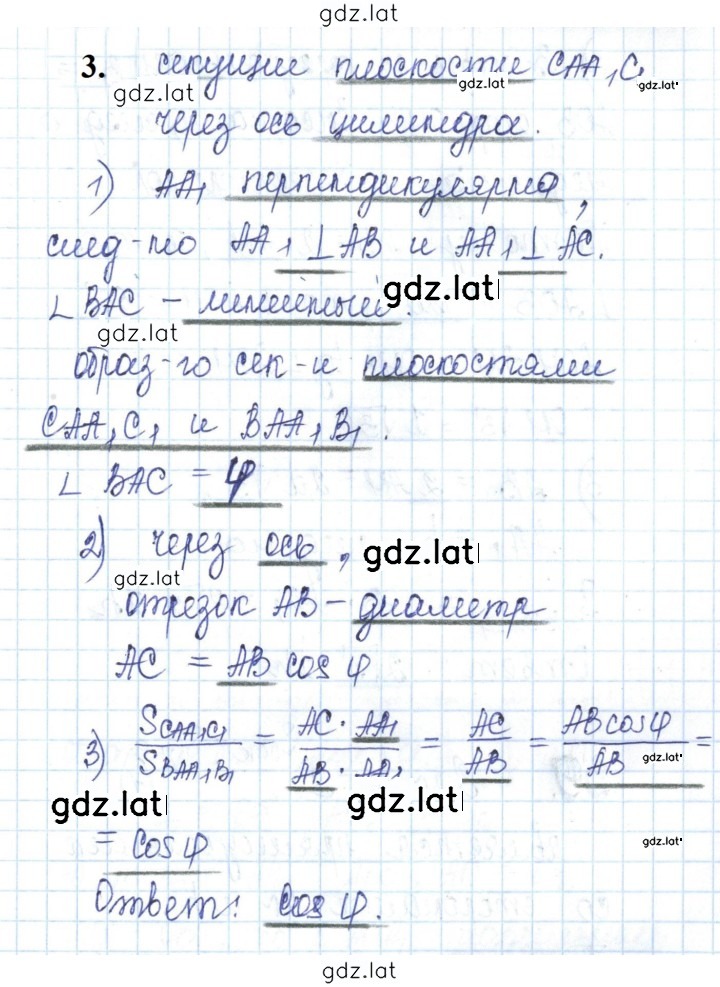 gdz.lat
3. секущие плоскостие CAA₁C₁
gdz.lat gdz.lat gdz.lat
через ось цилиндра.
1) AA₁ перпендикулярна,
след-но AA₁⊥AB и AA₁⊥AC.
∠ BAC – линейный. gdz.lat
gdz.lat
образ-го сек-и плоскостями
CAA₁C₁ и BAA₁B₁.
∠ BAC = φ
2) через ось, gdz.lat
gdz.lat
отрезок AB – диаметр
AC = AB cos φ
3) S_CAA₁C₁/S_BAA₁B₁ = AC · AA₁/AB · AA₁ = AC/AB = AB cos φ/AB =
gdz.lat gdz.lat gdz.lat
= cos φ gdz.lat
Ответ: cos φ.
gdz.lat